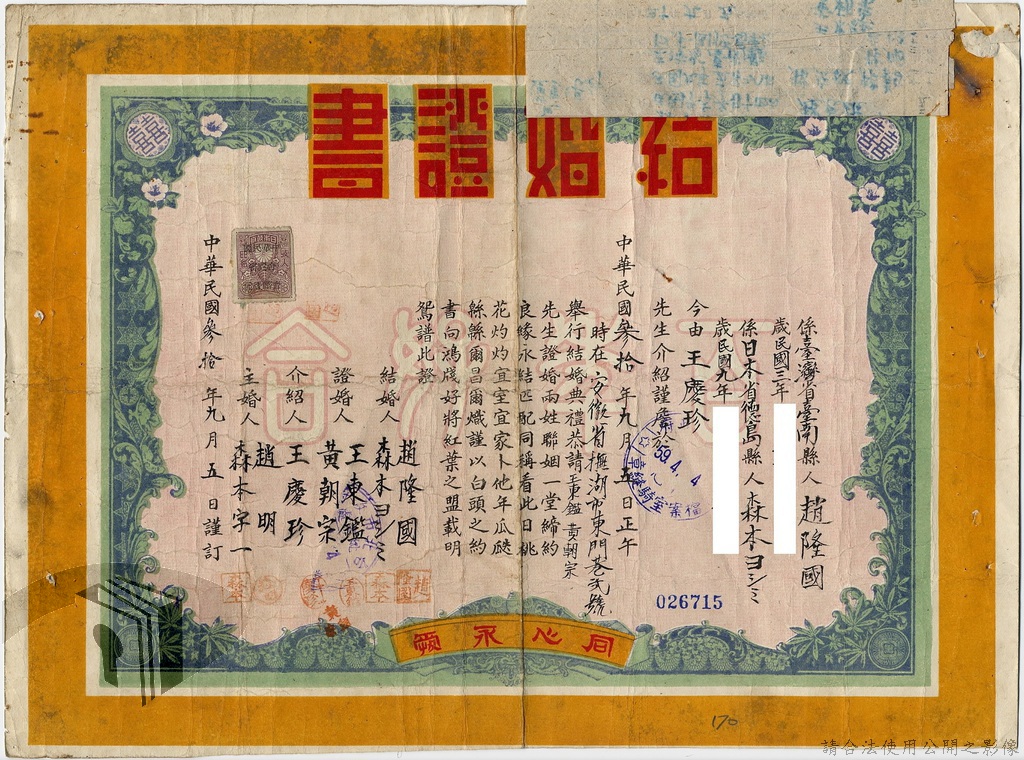 結婚證書
係臺灣省臺南縣人趙隆國
歲民國三年
係日本省德島縣人森本ヨシミ
歲民國九年
今由王慶珍
先生介紹謹詹於
中華民國參拾年九月五日正午
時在安徽省撫湖市東門巷弍號
舉行結婚典禮恭請王東鑑黄朝宗
先生證婚兩姓聯姻一堂締約
良緣永結匹配同稱看此日桃
花灼灼宜室宜家卜他年瓜瓞
緜緜爾昌爾熾謹以白頭之約
書向鴻牋好將紅葉之盟載明
鴛譜此證
結婚人趙隆國
森本ヨシミ
證婚人王東鑑
黄朝宗
介紹人王慶珍
主婚人趙明
森本字一
中華民國參拾年九月五日謹訂
百年好合
59.4.4
026715
同心永愛
170
請合法使用公開之影像